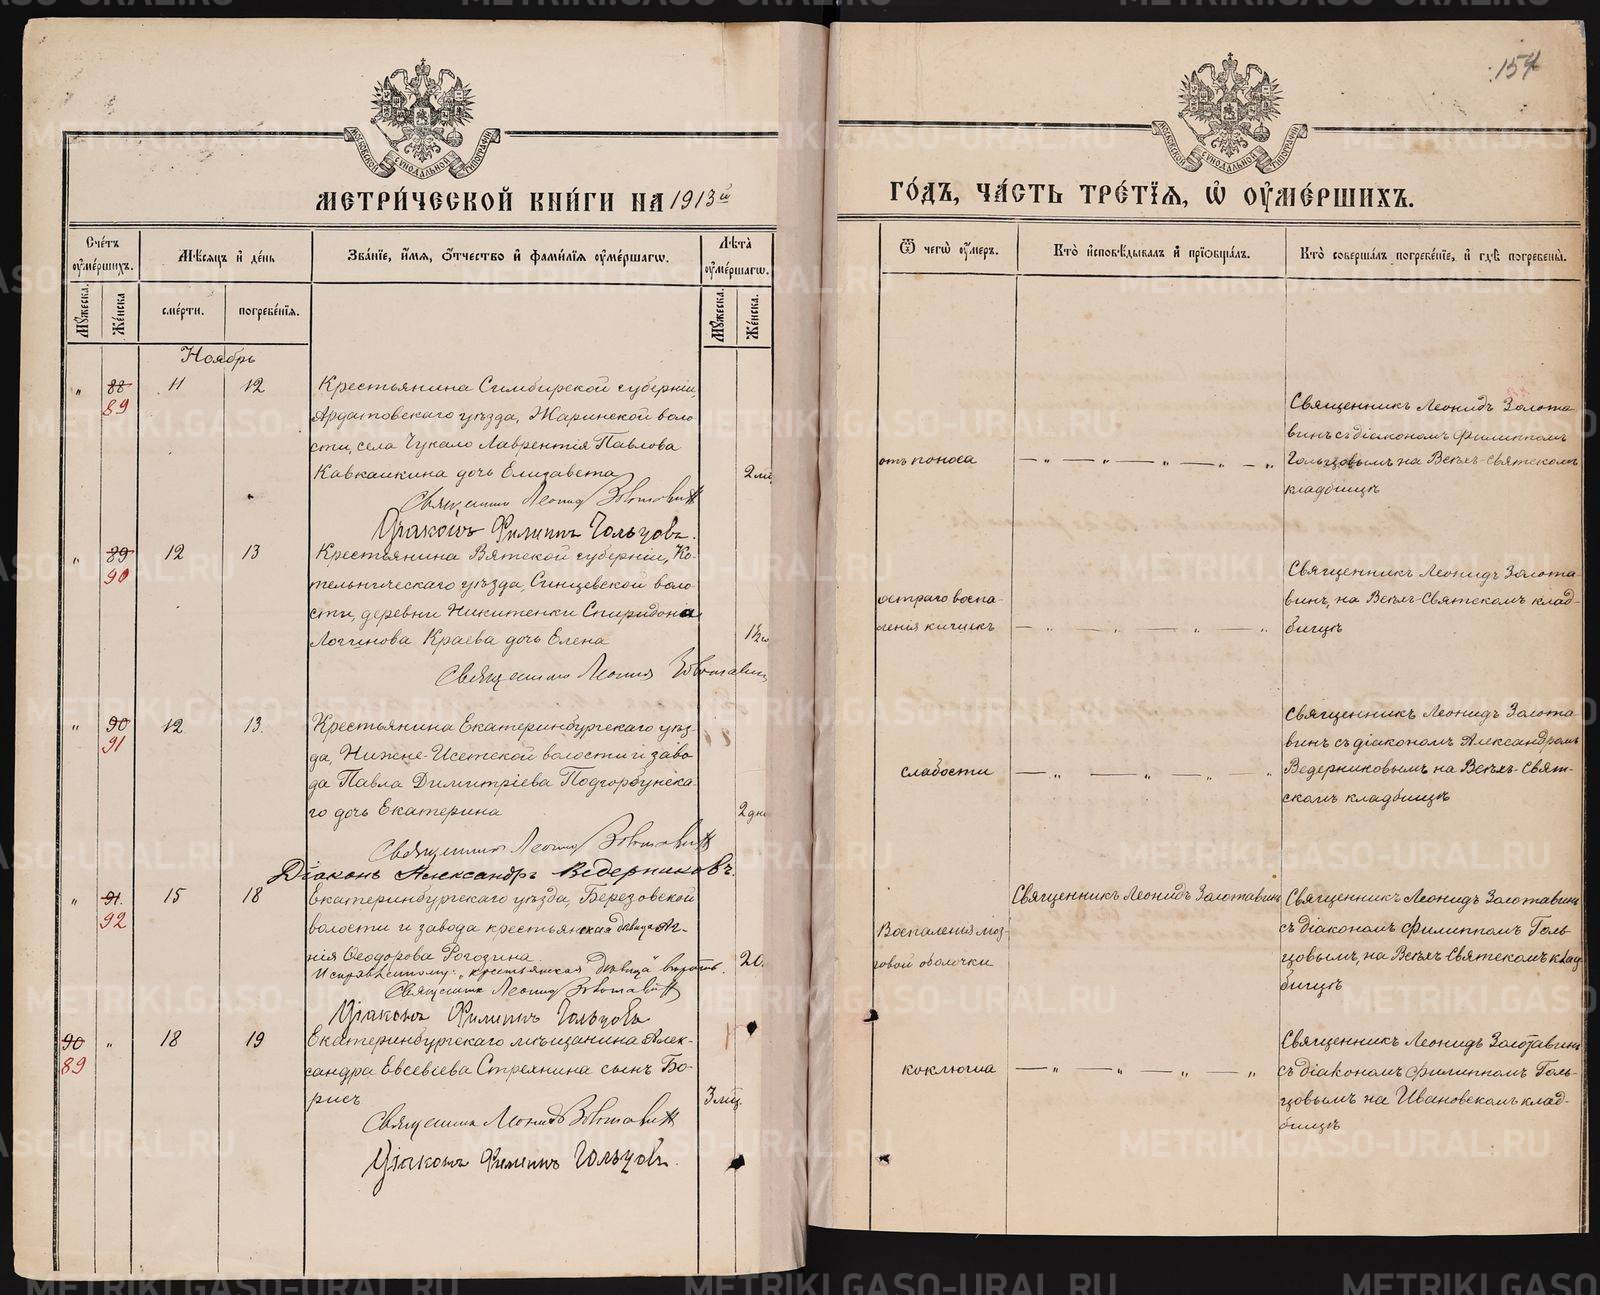 154
МОСКОВСКОЙ СѴНОДАЛЬНОЙ ТИПОГРАФІИ
МОСКОВСКОЙ СѴНОДАЛЬНОЙ ТИПОГРАФІИ
МЕТРИ́ЧЕСКОЙ КНИ́ГИ НА 1913й
ГО́ДЪ, ЧА́СТЬ ТРЕ́ТЇѦ, Ѡ҆ ОУ҆МЕ́РШИХЪ.
Сче́тъ оу҆ме́ршихъ.
Мѣ́сѧцъ и҆ де́нь
Зва́нїе, и҆́мѧ, ѻ҆́тчество и҆ фами́лїѧ оу҆ме́ршагѡ.
Лѣ́та оу҆ме́ршагѡ.
Ѿ чегѡ̀ оу҆́меръ.
Кто̀ и҆сповѣ́дывалъ и҆ прїѡбща́лъ.
Кто̀ соверша́лъ погребе́нїе, и҆ гдѣ̀ погребены̀.
Мꙋ́жеска.
Же́нска
сме́рти.
погребе́нїѧ.
Мꙋ́жеска.
Же́нска.
Ноябрь
" 88 11 12 Крестьянина Симбирской губерніи,
89
Ардатовскаго уѣзда, Жаринской воло
сти, села Чукало Лаврентія Павлова
Кавкайкина дочь Елизавета 2 мѣ
Священникъ Леонидъ Золотавинъ
Діаконъ Филиппъ Гольцовъ.
отъ поноса
Священникъ Леонидъ Золота
винъ съ діакономъ Филиппомъ
Гольцовымъ на Всѣхъ-Святскомъ
кладбищѣ
" 89 12 13 Крестьянина Вятской губерніи, Ко-
90
тельническаго уѣзда, Синцевской воло
сти, деревни Никитенки Спиридона
Логгинова Краева дочь Елена 1½
Священникъ Леонидъ Золотавинъ
остраго воспа-
ленія кишекъ
Священникъ Леонидъ Золота-
винъ, на Всѣхъ-Святскомъ клад-
бищѣ
" 90 12 13. Крестьянина Екатеринбургскаго уѣз-
91
да, Нижне-Исетской волости и заво
да Павла Димитріева Подгорбунска-
го дочь Екатерина 2 дн
Священникъ Леонидъ Золотавинъ
Діаконъ Александръ Ведерниковъ.
слабости
Священникъ Леонидъ Золота-
винъ съ діакономъ Александромъ
Ведерниковымъ на Всѣхъ-Свят-
скомъ кладбищѣ
" 91. 15 18 Екатеринбургскаго уѣзда, Березовской
92
волости и завода крестьянская дѣвица Ев-
нія Ѳеодорова Рогозина 20.
Исправленному: "крестьянская дѣвица" вѣрить.
Священникъ Леонидъ Золотавинъ
Діаконъ Филиппъ Гольцовъ
Воспаленія моз-
говой оболочки
Священникъ Леонидъ Золотавинъ
Священникъ Леонидъ Золотавинъ
съ діакономъ Филиппомъ Голь-
цовымъ, на Всѣхъ Святскомъ клад
бищѣ
90 " 18 19 Екатеринбургскаго мѣщанина Алек-
89
сандра Евсевіева Стрехнина сынъ Бо-
рисъ 3 мѣц.
Священникъ Леонидъ Золотавинъ
Діаконъ Филиппъ Гольцовъ.
коклюша
Священникъ Леонидъ Золотавинъ
съ діакономъ Филиппомъ Голь-
цовымъ на Ивановскомъ клад-
бищѣ
METRIKI.GASO-URAL.RU